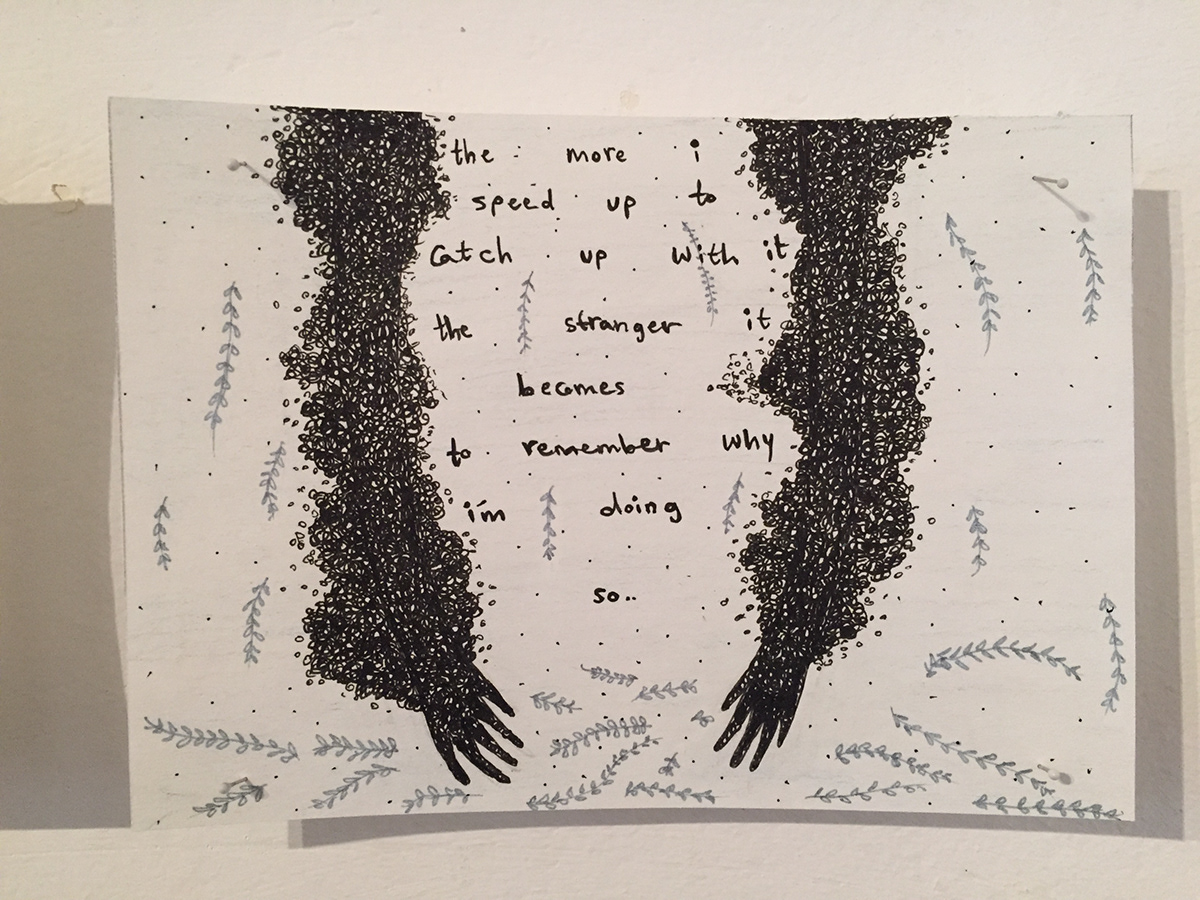 the more i
speed up to
catch up with it
the stranger it
becomes
to remember why
i'm doing
so..